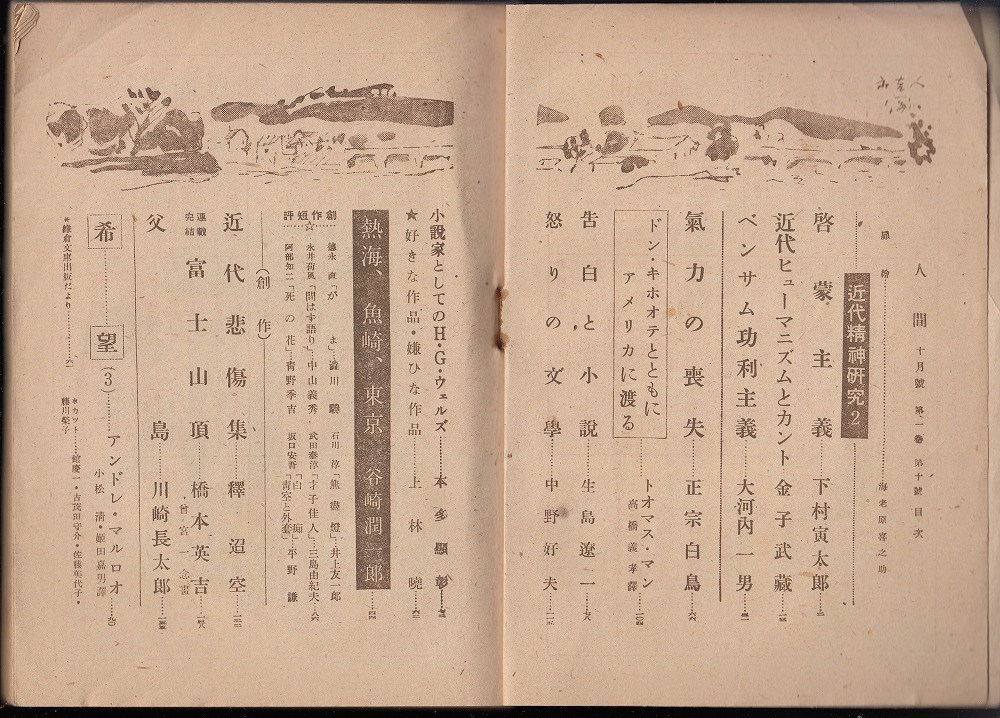 人間 十月號 第一卷 第十號 目次
扉繪……海老原喜之助
近代精神研究2
啓蒙主義……下村寅太郎…
近代ヒューマニズムとカント……金子武藏…
ベンサム功利主義……大河內一男…
氣力の喪失……正宗白鳥…六六
ドン・キホオテとともに
アメリカに渡る
トオマス・マン
高橋義孝譯…一〇四
告白と小說……生島遼一…
怒りの文學……中野好夫…
小說家としてのH・G・ウェルズ……本多顯彰…
★好きな作品・嫌ひな作品……上林曉…六二
熱海、魚崎、東京 谷崎潤一郎…四四
創作短評
☆
德永直「がま」…澁川驍
石川淳「燕盞燈」…井上友一郎
永井荷風「問はず語り」…中山義秀・
武田泰淳「才子佳人」…三島由紀夫…八六
阿部知二「死の花」…靑野季吉
坂口安吾「白痴」「靑空と外套」…平野謙
(創作)
近代悲傷集……釋迢空…一二二
連載完結 富士山頂……橋本英吉…
曾宮一念畫
父島……川崎長太郎…
希望(3)……アンドレ・マルロオ…九〇
小松淸・姬田嘉男譯
*鎌倉文庫出版だより……六一
*カット……館慶一・古茂田守介・佐藤美代子・
藤川榮子